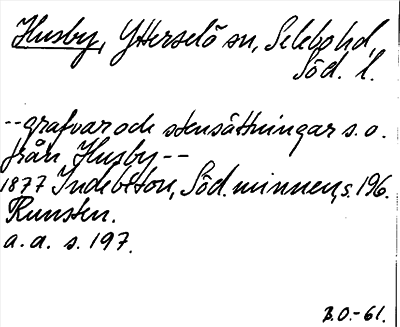 Husby, Ytterselö sn, Selebo hd,
Söd. l.
-- grafvar och stensättningar s.o.
från Husby --
1877 Indebetou, Söd. minnen, s. 196.
Runsten.
a. a. s. 197.
B.O.-61.